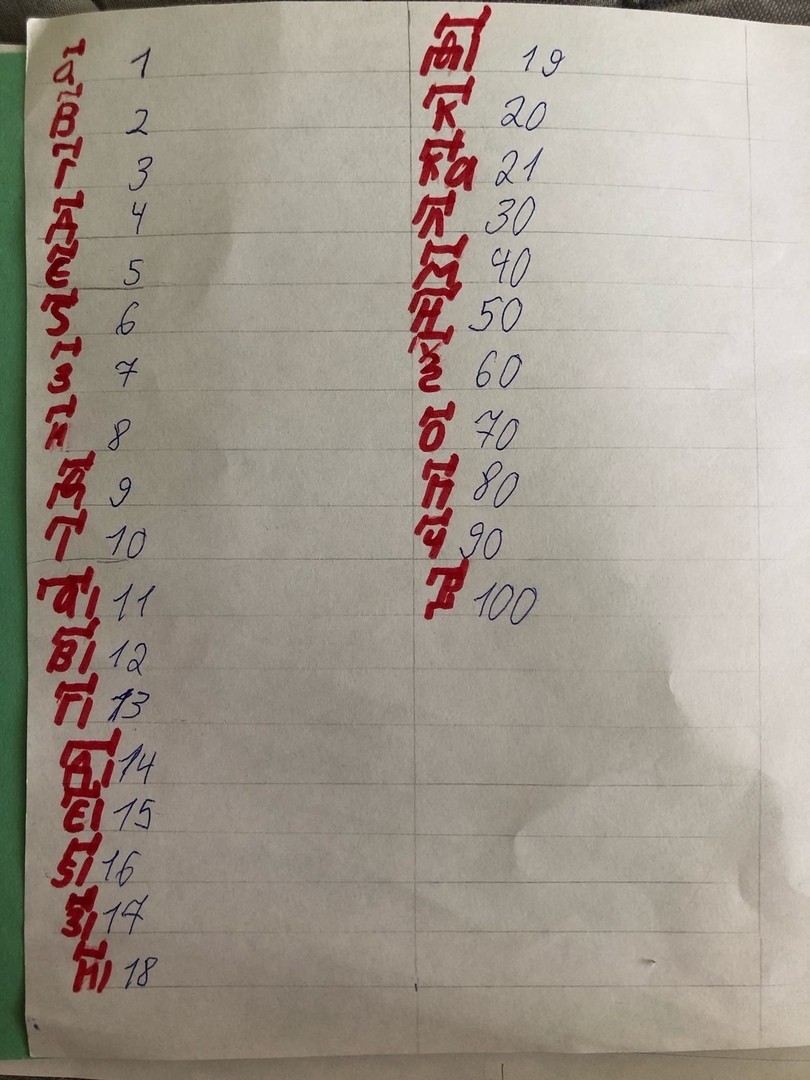 а҃ 1
в҃ 2
г҃ 3
д҃ 4
є҃ 5
ѕ҃ 6
з҃ 7
и҃ 8
ѳ҃ 9
і҃ 10
а҃і 11
в҃і 12
г҃і 13
д҃і 14
є҃і 15
ѕ҃і 16
з҃і 17
и҃і 18
ѳ҃і 19
к҃ 20
к҃а 21
л҃ 30
м҃ 40
н҃ 50
ѯ҃ 60
о҃ 70
п҃ 80
ч҃ 90
р҃ 100